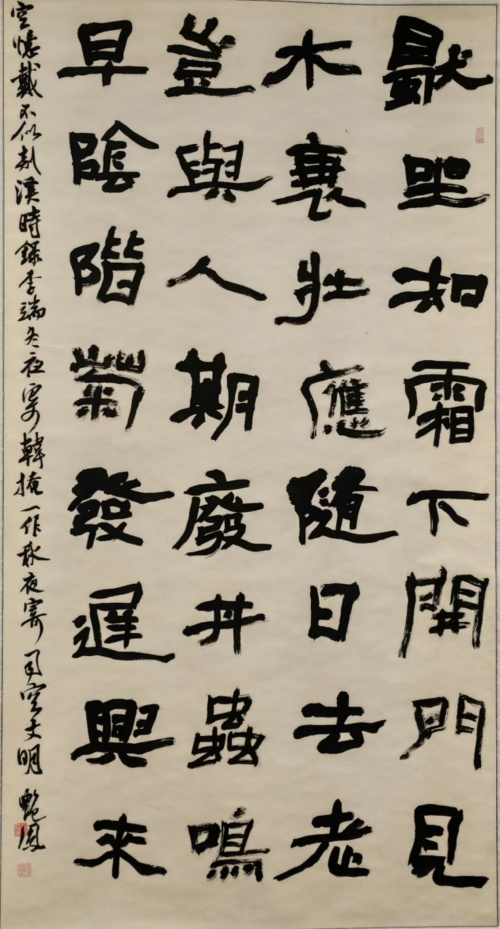 默坐知霜下開門見
木衰壯應隨日去老
豈與人期廢井蟲鳴
早陰階菊發遲興來
空憶戴不似剡溪時錄李端冬夜寄韓掩一作秋夜寄司空文明 艷鳳